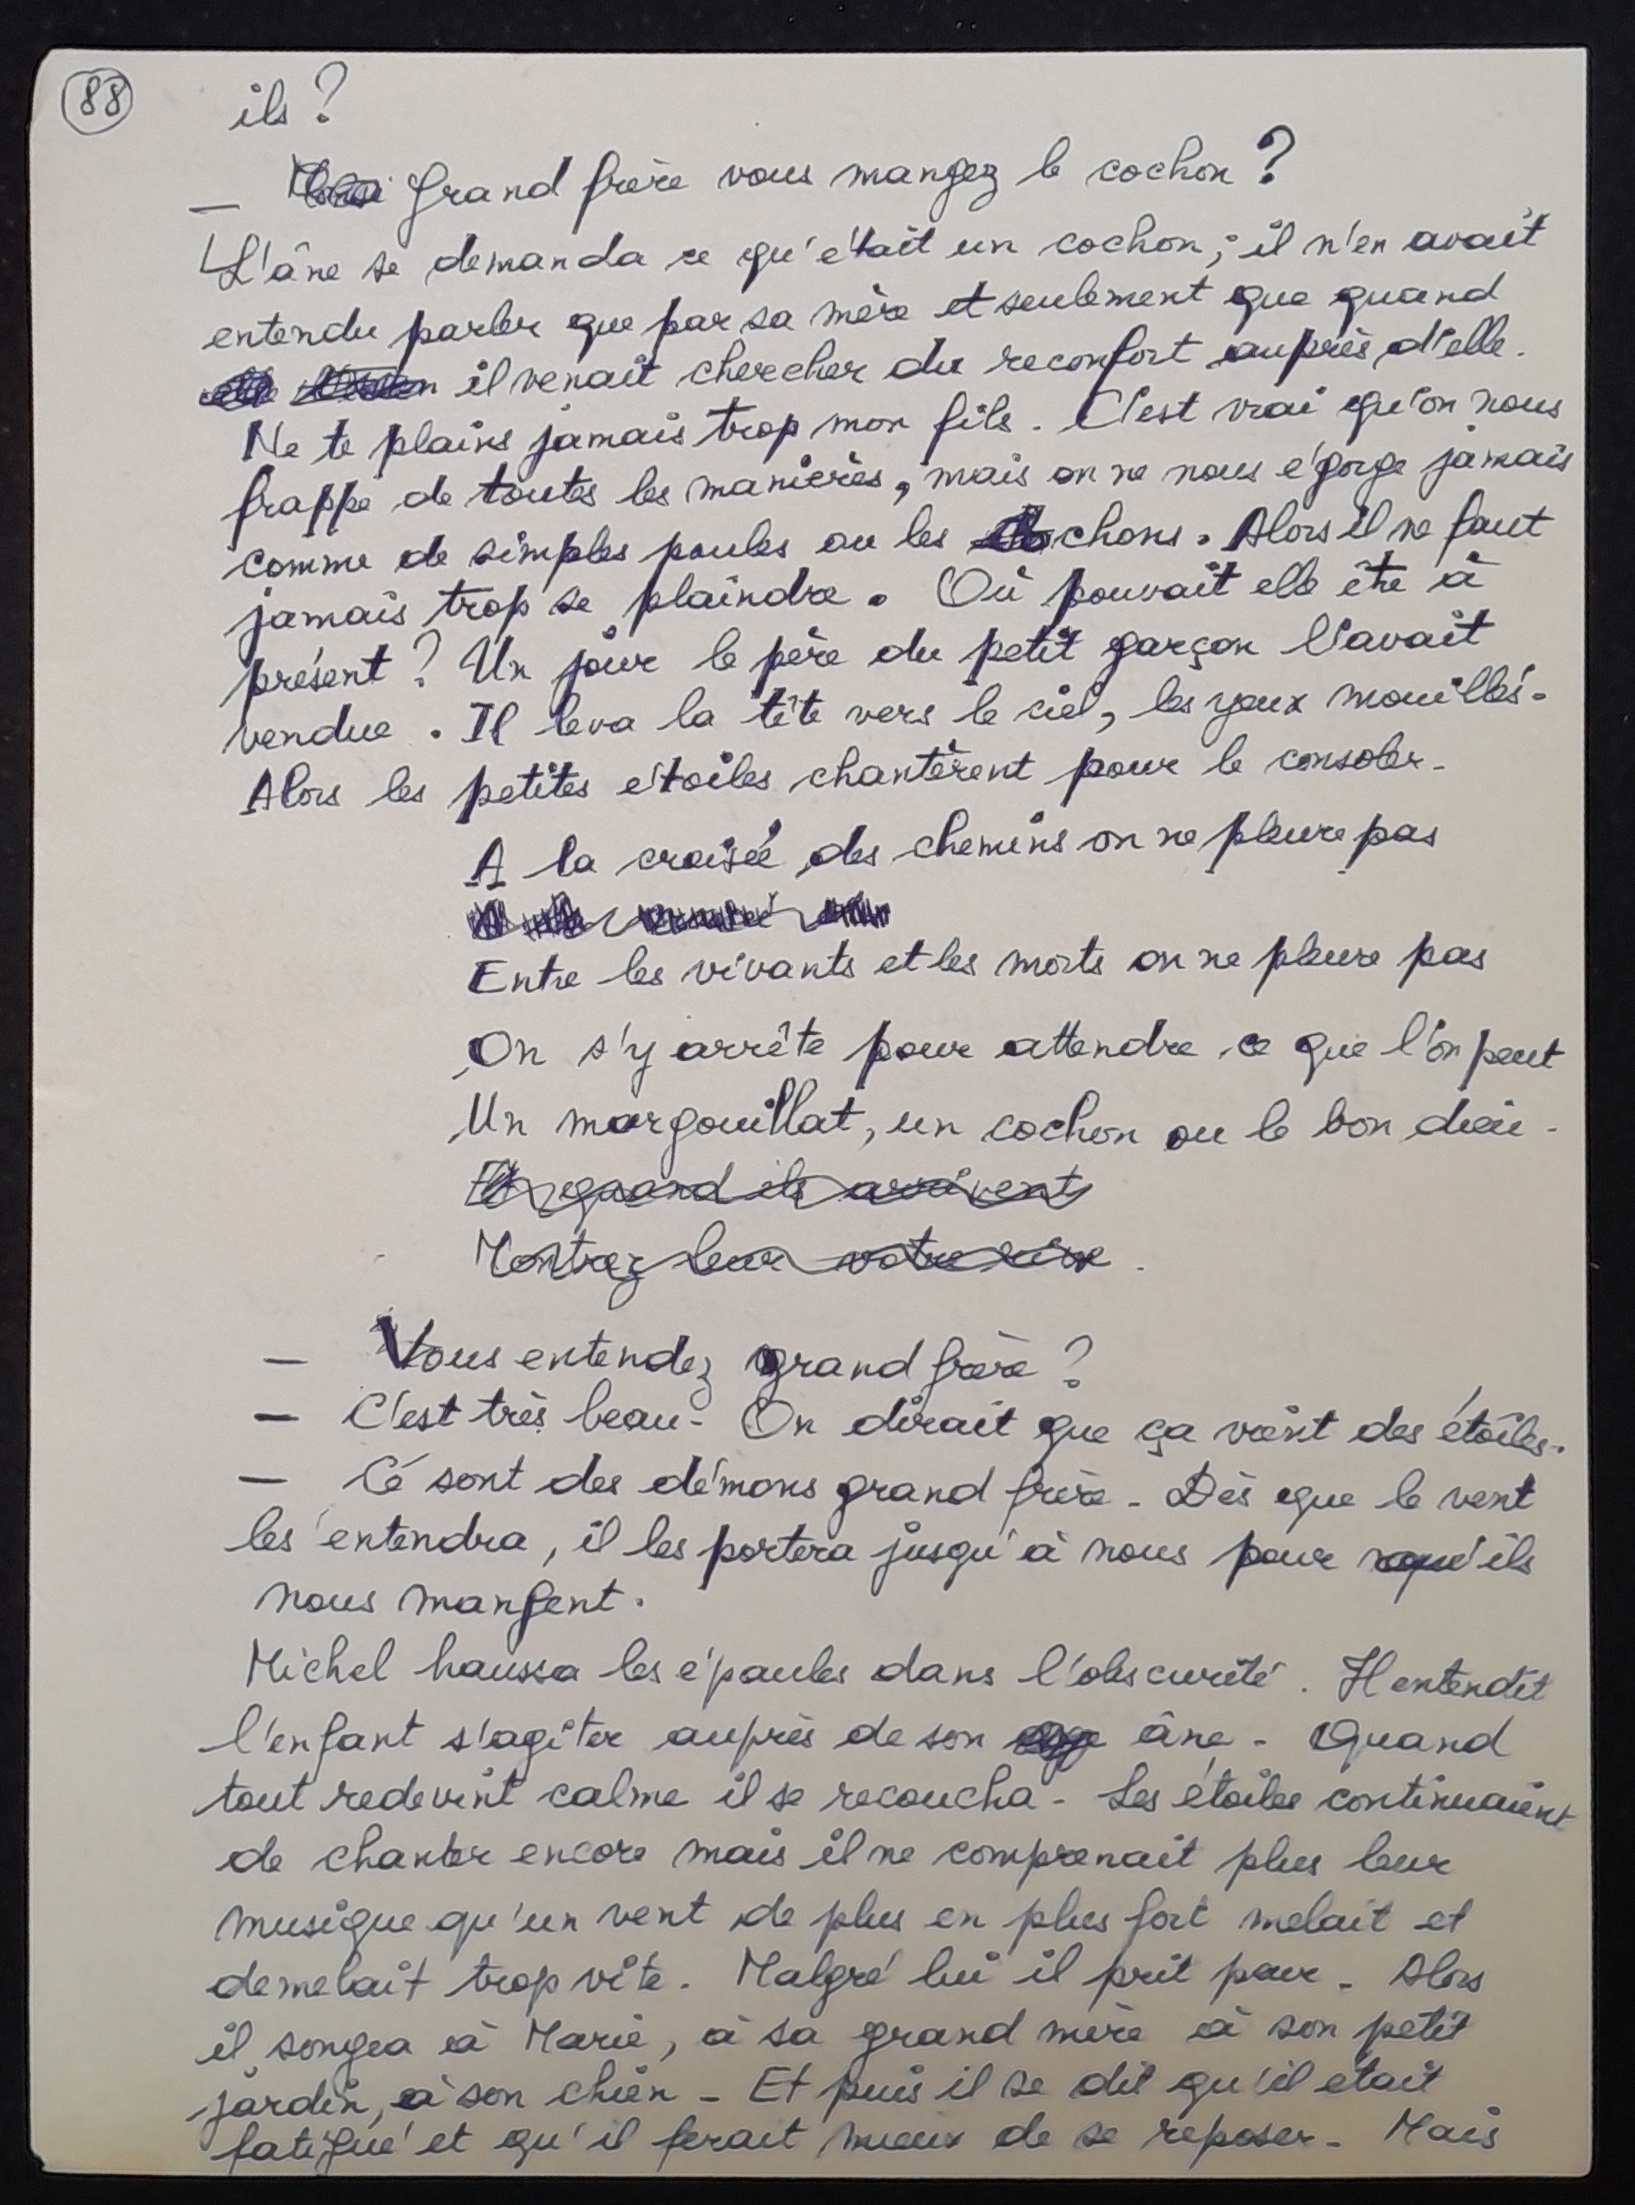 88
ils ?
— Grand frère vous mangez le cochon ?
L'âne se demanda ce qu'était un cochon ; il n'en avait
entendu parler que par sa mère et seulement que quand
il venait chercher du reconfort auprès d'elle.
Ne te plains jamais trop mon fils. C'est vrai qu'on nous
frappe de toutes les manières, mais on ne nous égorge jamais
comme de simples poules ou les cochons. Alors il ne faut
jamais trop se plaindre. Où pouvait elle être à
présent ? Un jour le père du petit garçon l'avait
vendue. Il leva la tête vers le ciel, les yeux mouillés.
Alors les petites étoiles chantèrent pour le consoler.
A la croisée des chemins on ne pleure pas
Entre les vivants et les morts on ne pleure pas
On s'y arrête pour attendre ce que l'on peut
Un margouillat, un cochon ou le bon dieu.
Et quand ils arrivent
Montrez leur votre rire.
— Vous entendez grand frère ?
— C'est très beau. On dirait que ça vient des étoiles.
— Ce sont des démons grand frère. Dès que le vent
les entendra, il les portera jusqu'à nous pour qu'ils
nous mangent.
Michel haussa les épaules dans l'obscurité. Il entendit
l'enfant s'agiter auprès de son âne. Quand
tout redevint calme il se recoucha. Les étoiles continuaient
de chanter encore mais il ne comprenait plus leur
musique qu'un vent de plus en plus fort melait et
demelait trop vite. Malgré lui il prit peur. Alors
il songea à Marie, à sa grand mère à son petit
jardin, à son chien. Et puis il se dit qu'il était
fatigué et qu'il ferait mieux de se reposer. Mais